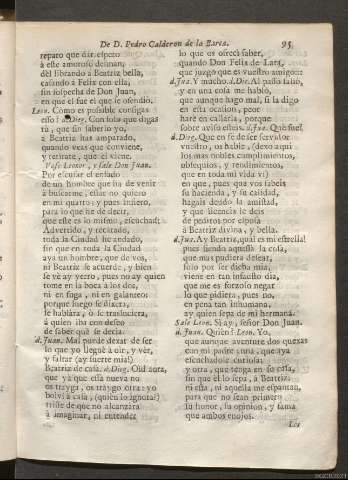 De D. Pedro Calderon de la Barca.
95
reparo que dir espero
à este amoroso desman,
del librando à Beatriz bella,
casando à Felix con ella,
sin sospecha de Don Juan,
en que el fue el que le ofendiò.
Leon. Como es possible consigas
esso? d.Dieg. Con sola que digas
tu, que sin saberlo yo,
à Beatriz has amparado,
quando veas que conviene,
y retirate, que èl viene.
Vase Leonor, y sale Don Juan.
Por escusar el enfado
de un hombre que ha de venir
à buscarme, esse no quiero
en mi quarto; y pues infiero,
para lo que he de decir,
que este es lo mismo, escuchad:
Advertido, y recatado,
toda la Ciudad he andado,
sin que en toda la Ciudad
aya un hombre, que de vos,
ni Beatriz se acuerde, y bien
se vè ay yerro, pues no ay quien
tome en la boca à los dos,
ni en fuga, ni en galanteo:
porque luego se dixera,
se hablàra, ò se trasluciera,
à quien iba con deseo
de saber què se decia.
d.Juan. Mal puede dexar de ser
lo que yo lleguè à oir, y vèr,
y faltar (ay suerte mia!)
Beatriz de casa. d.Dieg. Oid aora,
que yà que essa nueva no
os trayga, os traygo otra: yo
bolví à casa, (quien lo ignora?)
triste de que no alcanzàra
à imaginar, ni entender
lo que os ofrecì saber,
quando Don Felix de Lara,
que juzgo que es vuestro amigo::
d.Jua. Y mucho. d.Die. Al passo saliò,
y en una cosa me hablò,
que aunque hago mal, si la digo
en esta ocasion, peor
harè en callarla, porque
sobre aviso esteis. d.Jua. Què fue?
d.Dieg. Que en fe de ser servidor
vuestro, os hable, (dexo aqui
los mas nobles cumplimientos,
obsequios, y rendimientos,
que en toda mi vida vì)
en que, pues que vos sabeis
su hacienda, y su calidad,
hagais deudo la amistad,
y que licencia le deis
de pediros por esposa
à Beatriz divina, y bella.
d.Jua. Ay Beatriz, qual es mi estrella!
pues siendo aquessa la cosa,
que mas pudiera desear,
solo por ser dicha mia,
viene en tan infausto dia,
que me es forzoso negar
lo que pidiera, pues no,
en pena tan inhumana,
ay quien sepa de mi hermana.
Sale Leon. Si ay, señor Don Juan.
d.Juan. Quien? Leon. Yo,
que aunque aventure dos quexas
con mi padre, una, que aya
escuchadole curiosa:
y otra, que tenga en su casa,
sin que èl lo sepa, à Beatriz:
ni esta, ni aquella me espantan,
para que no sean primero
su honor, su opinion, y fama
que ambos enojos.
Los